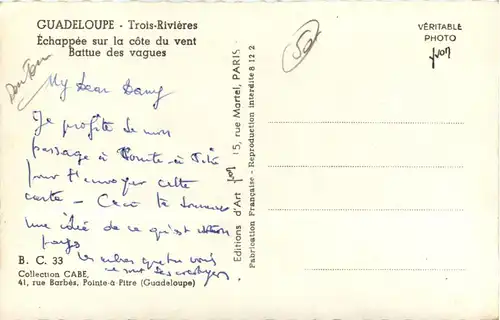 GUADELOUPE - Trois-Rivières
Échappée sur la côte du vent
Battue des vagues
VÉRITABLE
PHOTO
yvon
My Dear Dany
Je profite de mon
passage à Pointe-à-Pitre
pour t'envoyer cette
carte - Ceci te donnera
une idée de ce qu'est
pays
les arbres que tu vois
ce sont des cocotiers.
B. C. 33
Collection CABE,
41, rue Barbès, Pointe-à-Pitre (Guadeloupe)
Editions d'Art yvon 15, rue Martel, PARIS
Fabrication Française - Reproduction interdite 8 12 2